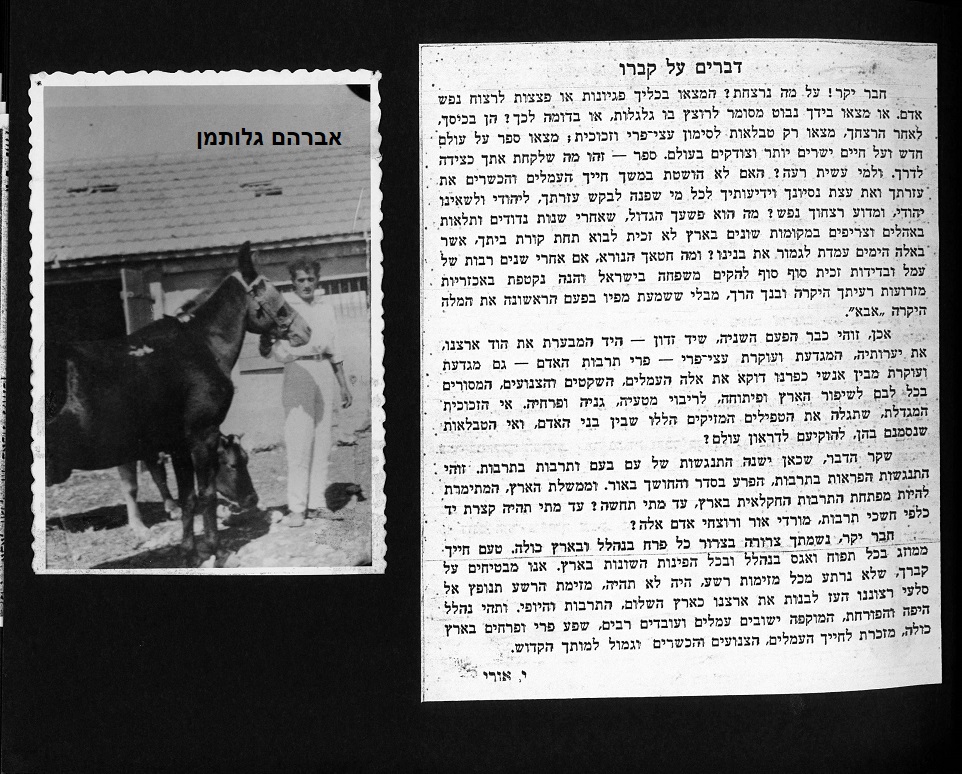 אברהם גלותמן
דברים על קברו
חבר יקר! על מה נרצחת? המצאו בכליך פגיונות או פצצות לרצוח נפש
אדם. או מצאו בידך נבוט מסומר לרוצץ בו גלגלות, או בדומה לכך? הן בכיסך,
לאחר הרצחך, מצאו רק טבלאות לסימון עצי־פרי וזכוכית; מצאו ספר על עולם
חדש ועל חיים ישרים יותר וצודקים בעולם. ספר — זהו מה שלקחת אתך כצידה
לדרך. ולמי עשית רעה? האם לא הושטת במשך חייך העמלים והכשרים את
עזרתך ואת עצת נסיונך וידיעותיך לכל מי שפנה לבקש עזרתך, ליהודי ולשאינו
יהודי, ומדוע רצחוך נפש? מה הוא פשעך הגדול, שאחרי שנות נדודים ותלאות
באהלים וצריפים במקומות שונים בארץ לא זכית לבוא תחת קורת ביתך, אשר
באלה הימים עמדת לגמור את בנינו? ומה חטאך הנורא, אם אחרי שנים רבות של
עמל ובדידות זכית סוף סוף להקים משפחה בישראל והנה נקטפת באכזריות
מזרועות רעיתך היקרה ובנך הרך, מבלי ששמעת מפיו בפעם הראשונה את המלה
היקרה „אבא”.
אכן, זוהי כבר הפעם השניה, שיד זדון — היד המבערת את הוד ארצנו,
את יערותיה, המגדעת ועוקרת עצי־פרי — פרי תרבות האדם — גם מגדעת
ועוקרת מבין אנשי כפרנו דוקא את אלה העמלים, השקטים והצנועים, המסורים
בכל לבם לשיפור הארץ ופיתוחה, לריבוי מטעיה, גניה ופרחיה. אי הזכוכית
המגדלת, שתגלה את הטפילים המזיקים הללו שבין בני האדם, ואי הטבלאות
שנסמנם בהן, להוקיעם לדראון עולם?
שקר הדבר, שכאן ישנה התנגשות של עם בעם ותרבות בתרבות. זוהי
התנגשות הפראות בתרבות, הפרע בסדר והחושך באור. וממשלת הארץ, המתימרת
להיות מפתחת התרבות החקלאית בארץ, עד מתי תחשה? עד מתי תהיה קצרת יד
כלפי חשכי תרבות, מורדי אור ורוצחי אדם אלה?
חבר יקר, נשמתך צרורה בצרור כל פרח בנהלל ובארץ כולה. טעם חייך
ממוזג בכל תפוח ואגס בנהלל ובכל הפינות השונות בארץ. אנו מבטיחים על
קברך, שלא נרתע מכל מזימות רשע, היה לא תהיה, מזימת הרשע תנופץ אל
סלעי רצוננו העז לבנות את ארצנו כארץ השלום, התרבות והיופי. ותהי נהלל
היפה והפורחת, המוקפה ישובים עמלים ועובדים רבים, שפע פרי ופרחים בארץ
כולה, מזכרת לחייך העמלים, הצנועים והכשרים וגמול למותך הקדוש.
י. אורי